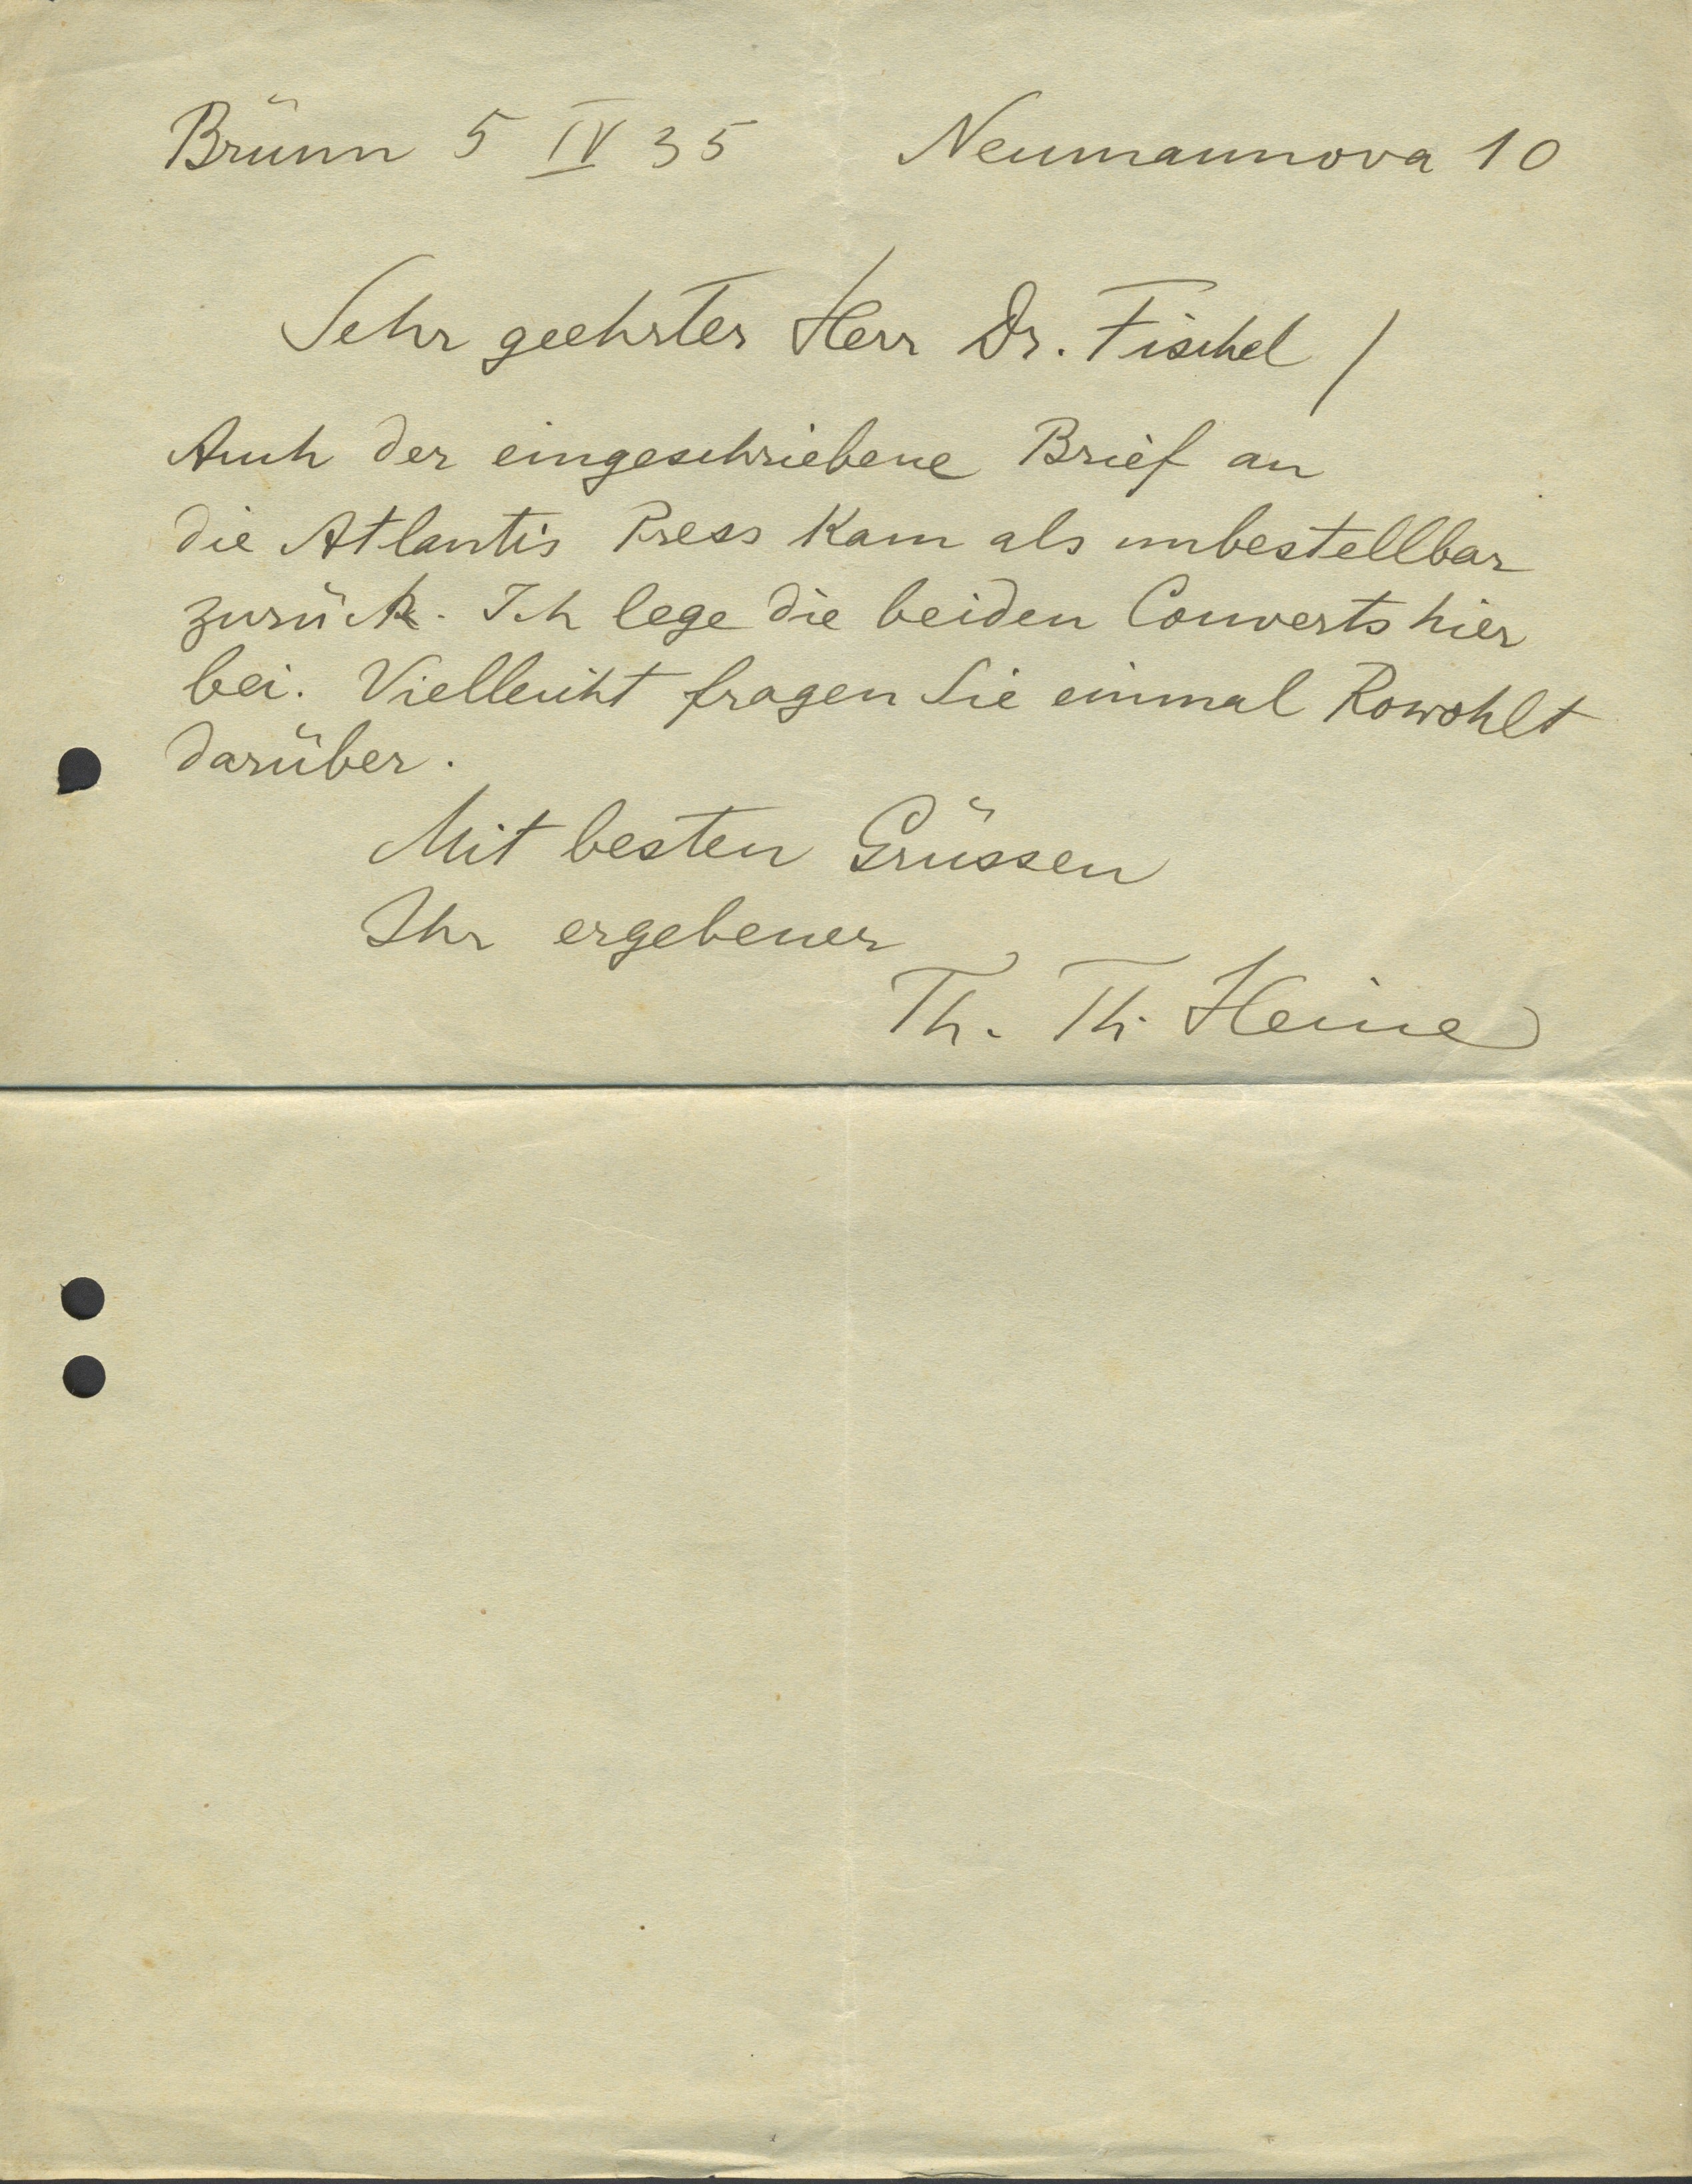 Brünn 5 IV 35 Neumannova 10
Sehr geehrter Herr Dr. Fischel /
Auch der eingeschriebene Brief an
die Atlantis Press kam als unbestellbar
zurück. Ich lege die beiden Couverts hier
bei. Vielleicht fragen Sie einmal Rowohlt
darüber.
Mit besten Grüssen
Ihr ergebener
Th. Th. Heine